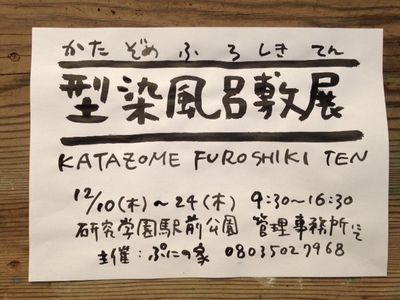 かたぞめふろしきてん
型染風呂敷展
KATAZOME FUROSHIKI TEN
12/10(木)～24(木) 9:30～16:30
研究学園駅前公園 管理事務所にて
主催：ぷにの家 08035027968